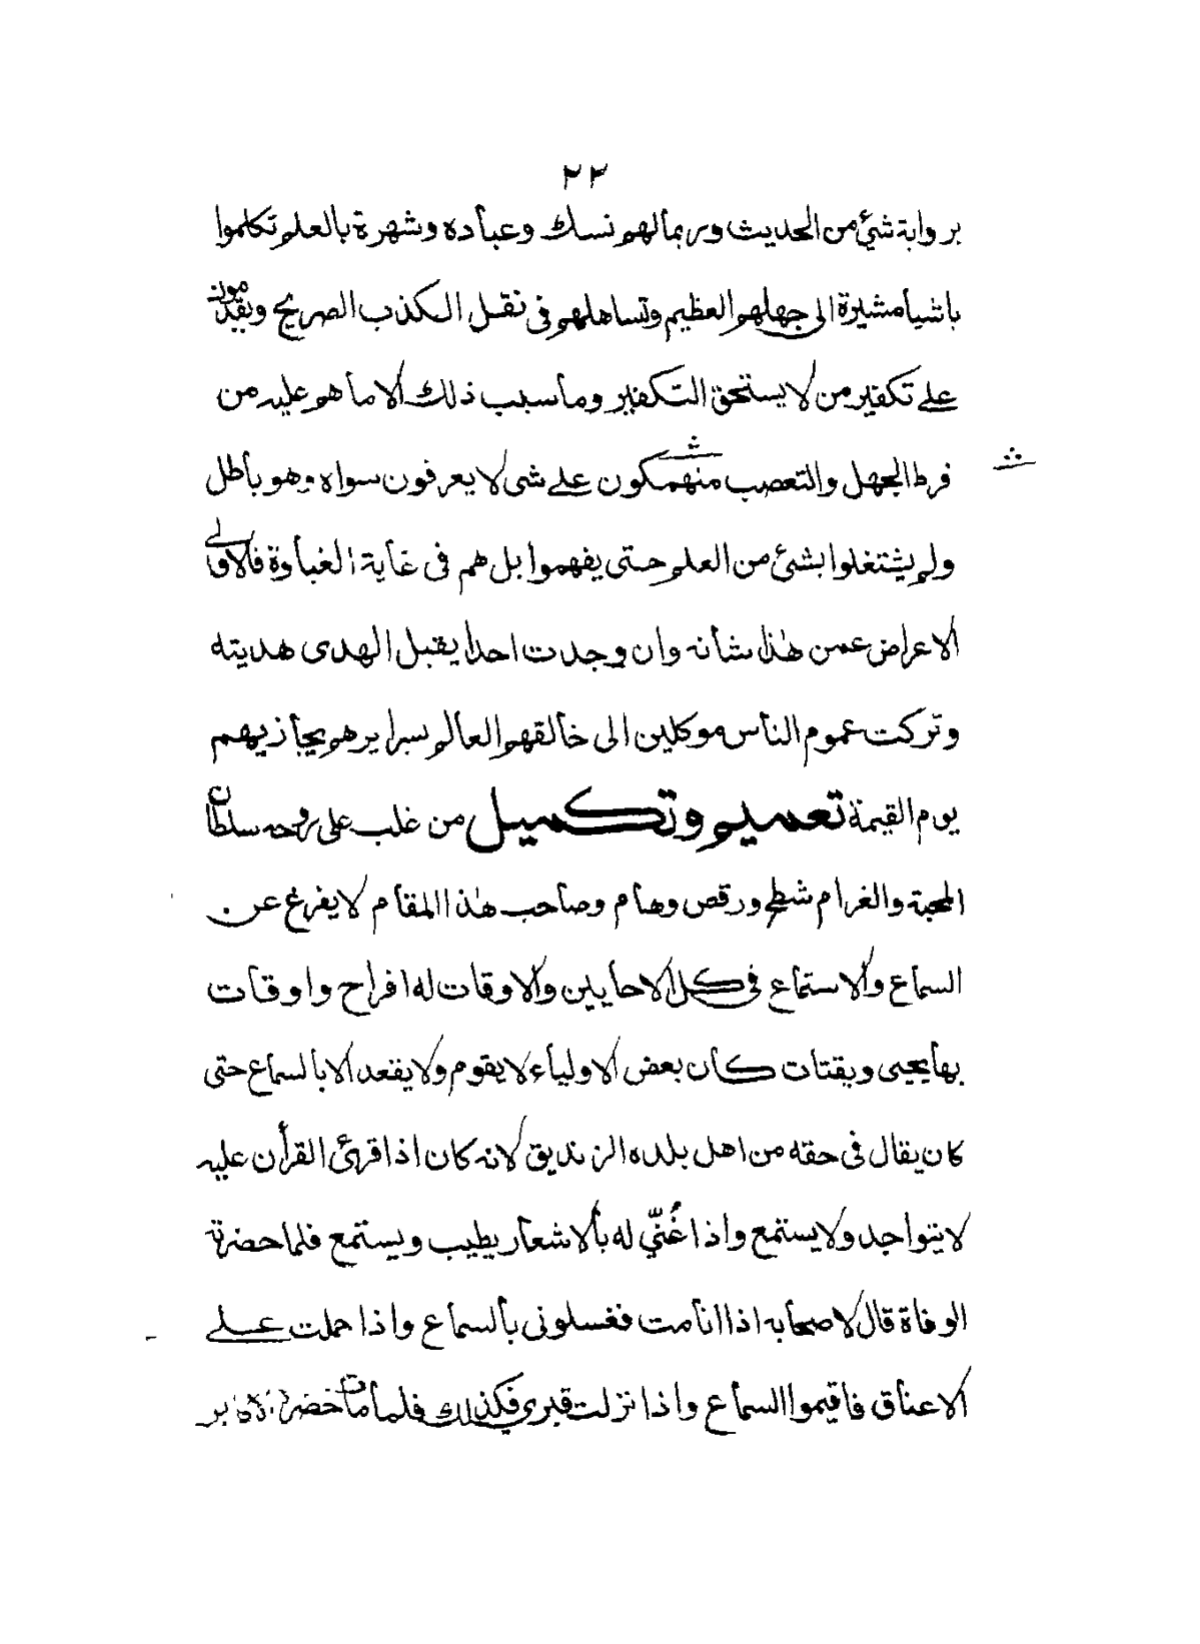 ٢٢
برواية شئ من الحديث وربما لهم نسك وعبادة وشهرة بالعلم تكلموا
باشياء مشيرة الى جهلهم العظيم وتساهلهم فى نقل الكذب الصريح ويقدمون
على تكفير من لا يستحق التكفير وما سبب ذلك الا ما هو عليه من
فرط الجهل والتعصب منهمكون على شى لا يعرفون سواه وهو باطل
ولم يشتغلوا بشئ من العلم حتى يفهموا بل هم فى غاية الغباوة فالاولى
الاعراض عمن هذا شانه وان وجدت احدا يقبل الهدى هديته
وتركت عموم الناس موكلين الى خالقهم العالم بسرايرهم يجازيهم
يوم القيمة تعميم وتكميل من غلب على روحه سلطان
المحبة والغرام شطح ورقص وهام وصاحب هذا المقام لا يفرغ عن
السماع والاستماع فى كل الاحايين والاوقات له افراح واوقات
بها يحيى ويقتات كان بعض الاولياء لا يقوم ولا يقعد الا بالسماع حتى
كان يقال فى حقه من اهل بلده الزنديق لانه كان اذا قرئ القرأن عليه
لا يتواجد ولا يستمع واذا غُنّي له بالاشعار يطيب ويستمع فلما حضرته
الوفاة قال لاصحابه اذا انا مت فغسلونى بالسماع واذا حملت على
الاعناق فاقيموا السماع واذا نزلت قبري فكذلك فلما مات حضر الاكابر